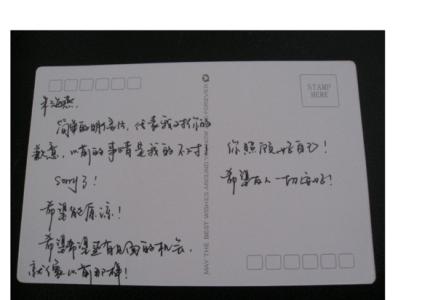 STAMP
HERE
简单的明信片，代表我对你的
歉意，以前的事情是我的不对！
Sorry了！
希望能原谅！
希望希望还有见面的机会，
就像以前那样！
你照顾好自己！
希望友人一切安好！
MAY THE BEST WISHES AROUND YOU FOREVER